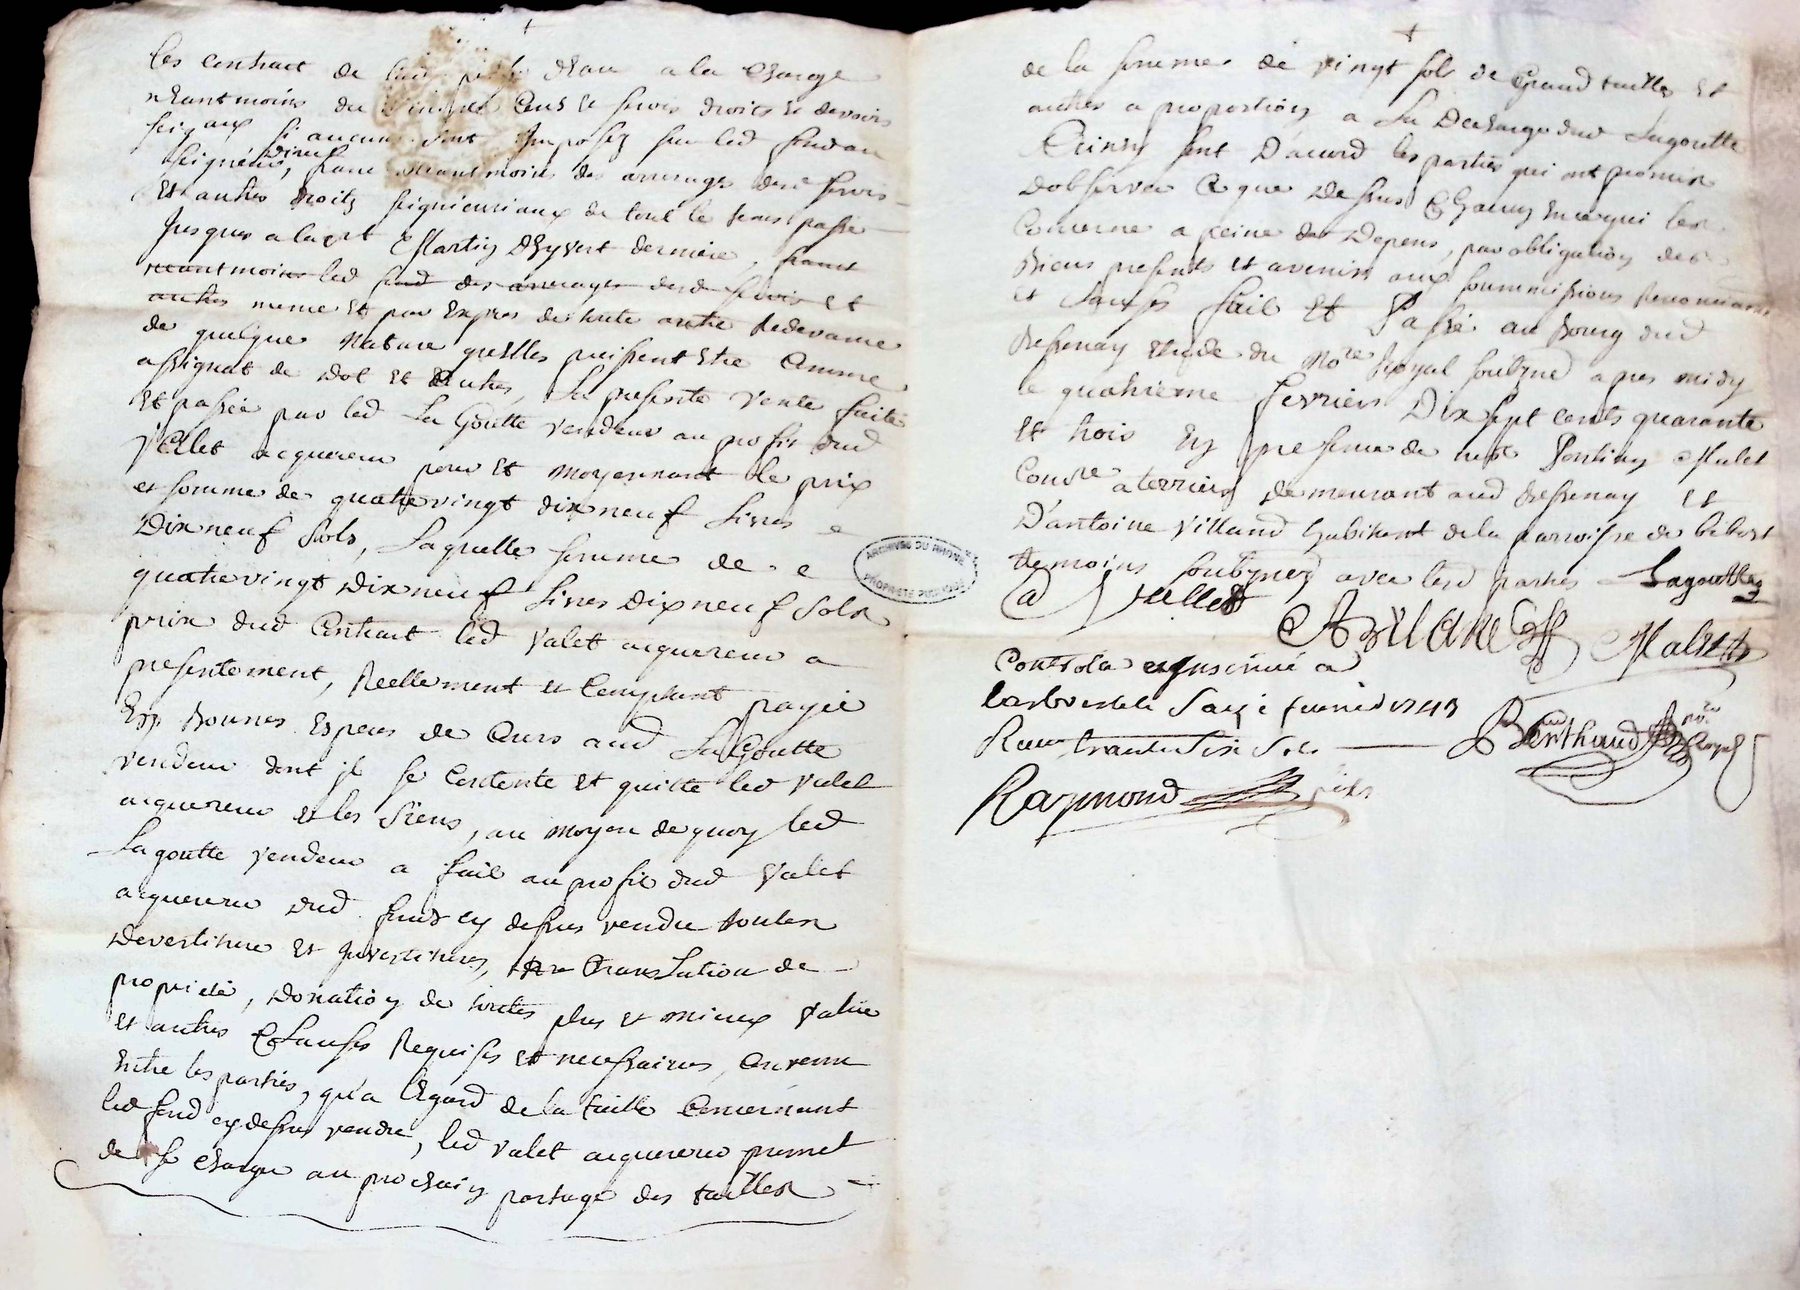 les contract de
neantmoins du Cens et servis droits et devoirs
seig.aux si aucuns sont Imposez sur led fond au
seigneur direct, franc neantmoins des arrerages desd servis
Et autres droits seigneuriaux de tout le temps passé
Jusques a la St Martin dhyvert derniere, franc
neantmoins led fond des arrerages desd servis et
autres meme Et par Expres de toute autre Redevance
de quelque Nature quelles puissent Etre Comme
assignat de dot Et autres, La presente vente faite
Et passée par led La Goutte vendeur au profit dud
Vallet acquereur pour Et moyennant le prix
et somme de quatrevingt dix neuf Livres
Dix neuf Sols, Laquelle somme de
quatrevingt Dix neuf Livres Dix neuf Sols
prix dud Contract led Valet acquereur a
presentement, Reellement et Comptant payé
En Bonnes Especes de Cours aud La Goutte
vendeur dont il se Contente Et quitte led Valet
acquereur et les Siens, au moyen de quoy led
Lagoutte vendeur a fait au profit dud Valet
acquereur dud fond cy dessus vendu toutes
Devestitures Et Investitures, Translation de
propriété, Donation de toutes plus et mieux Value
Et autres Clauses Requises Et necessaires, Convenu
Entre les parties, qu'a l'Egard de la taille Concernant
led fond cy dessus vendu, led Valet acquereur promet
de se Charger au prochain partage des tailles
de la somme de vingt sols de Grand tailles Et
autres a proportion a La Decharge dud Lagoutte
Ainsy sont D'acord les parties qui ont promis
D'observer Ce que Dessus Chacun En ce qui les
Concerne a peine de Depens, par obligation de
Biens presents Et avenir aux soummissions Renonciations
et Clauses fait Et Passé au Bourg dud
Bessenay Etude du No.re Royal soubsné apres midy
le quatrieme fevrier Dix sept cents quarante
Et trois En presence de Malet
Com.re a terriers demeurant aud Bessenay Et
D'antoine Villand habitant de la parroisse de bibost
temoins soubsnez avec lesd parties Lagoutte
Vallet
Malet
Controllé et Insinué a
Larbresle le Sazi fevrier 1743
Receu trante Six Sols
Berthaud No.re Royal
Raymond
ARCHIVES DU RHONE
PROPRIETE PUBLIQUE